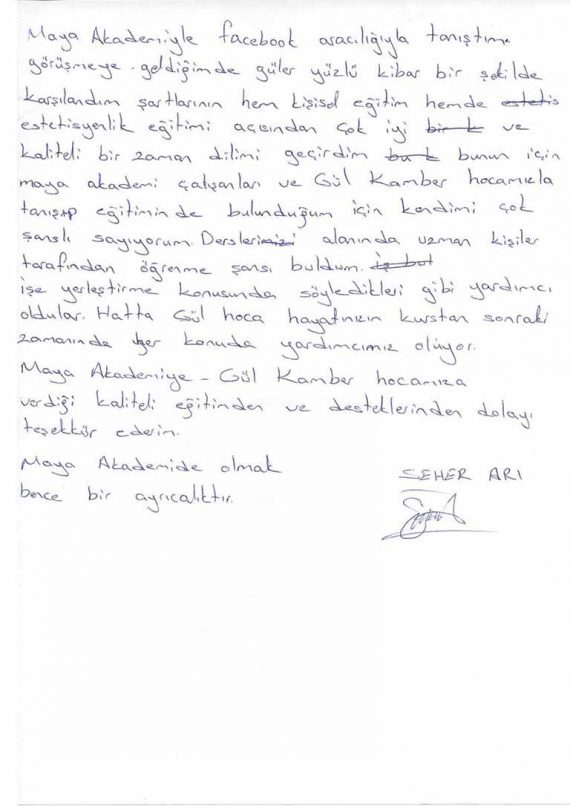 Maya Akademiyle facebook aracılığıyla tanıştım.
görüşmeye geldiğimde güler yüzlü kibar bir şekilde
karşılandım şartlarının hem kişisel eğitim hemde estetis
estetisyenlik eğitimi açısından çok iyi bir k ve
kaliteli bir zaman dilimi geçirdim bu k bunun için
maya akademi çalışanları ve Gül Kamber hocamızla
tanışıp eğitiminde bulunduğum için kendimi çok
şanslı sayıyorum. Derslerimizi alanında uzman kişiler
tarafından öğrenme şansı buldum. iş bul
işe yerleştirme konusunda söyledikleri gibi yardımcı
oldular. Hatta Gül hoca hayatımızın kurstan sonraki
zamanında her konuda yardımcımız oluyor.
Maya Akademiye - Gül Kamber hocamıza
verdiği kaliteli eğitimden ve desteklerinden dolayı
teşekkür ederim.
Maya Akademide olmak
bence bir ayrıcalıktır.
SEHER ARI